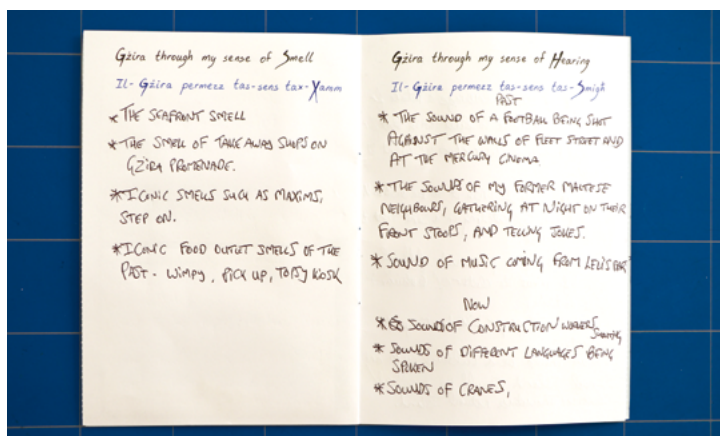 Gżira through my sense of Smell
Il-Gżira permezz tas-sens tax-Xamm
* THE SEAFRONT SMELL
* THE SMELL OF TAKE AWAY SHOPS ON
GŻIRA PROMENADE.
* ICONIC SMELLS SUCH AS MAXIMS,
STEP ON.
* ICONIC FOOD OUTLET SMELLS OF THE
PAST - WIMPY, PICK UP, TOPSY KIOSK
Gżira through my sense of Hearing
Il-Gżira permezz tas-sens tas-Smigħ
PAST
* THE SOUND OF A FOOTBALL BEING SHOT
AGAINST THE WALLS OF FLEET STREET AND
AT THE MERCURY CINEMA
* THE SOUNDS OF MY FORMER MALTESE
NEIGHBOURS, GATHERING AT NIGHT ON THEIR
FRONT STOOPS, AND TELLING JOKES.
* SOUND OF MUSIC COMING FROM
NOW
* SOUNDS OF CONSTRUCTION WORKERS
* SOUNDS OF DIFFERENT LANGUAGES BEING
SPOKEN
* SOUNDS OF CRANES,